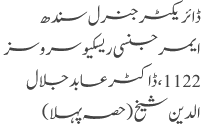 ڈائریکٹر جنرل سندھ
ایمرجنسی ریسکیو سروسز
1122، ڈاکٹر عابد جلال
الدین شیخ (حصہ پہلا)